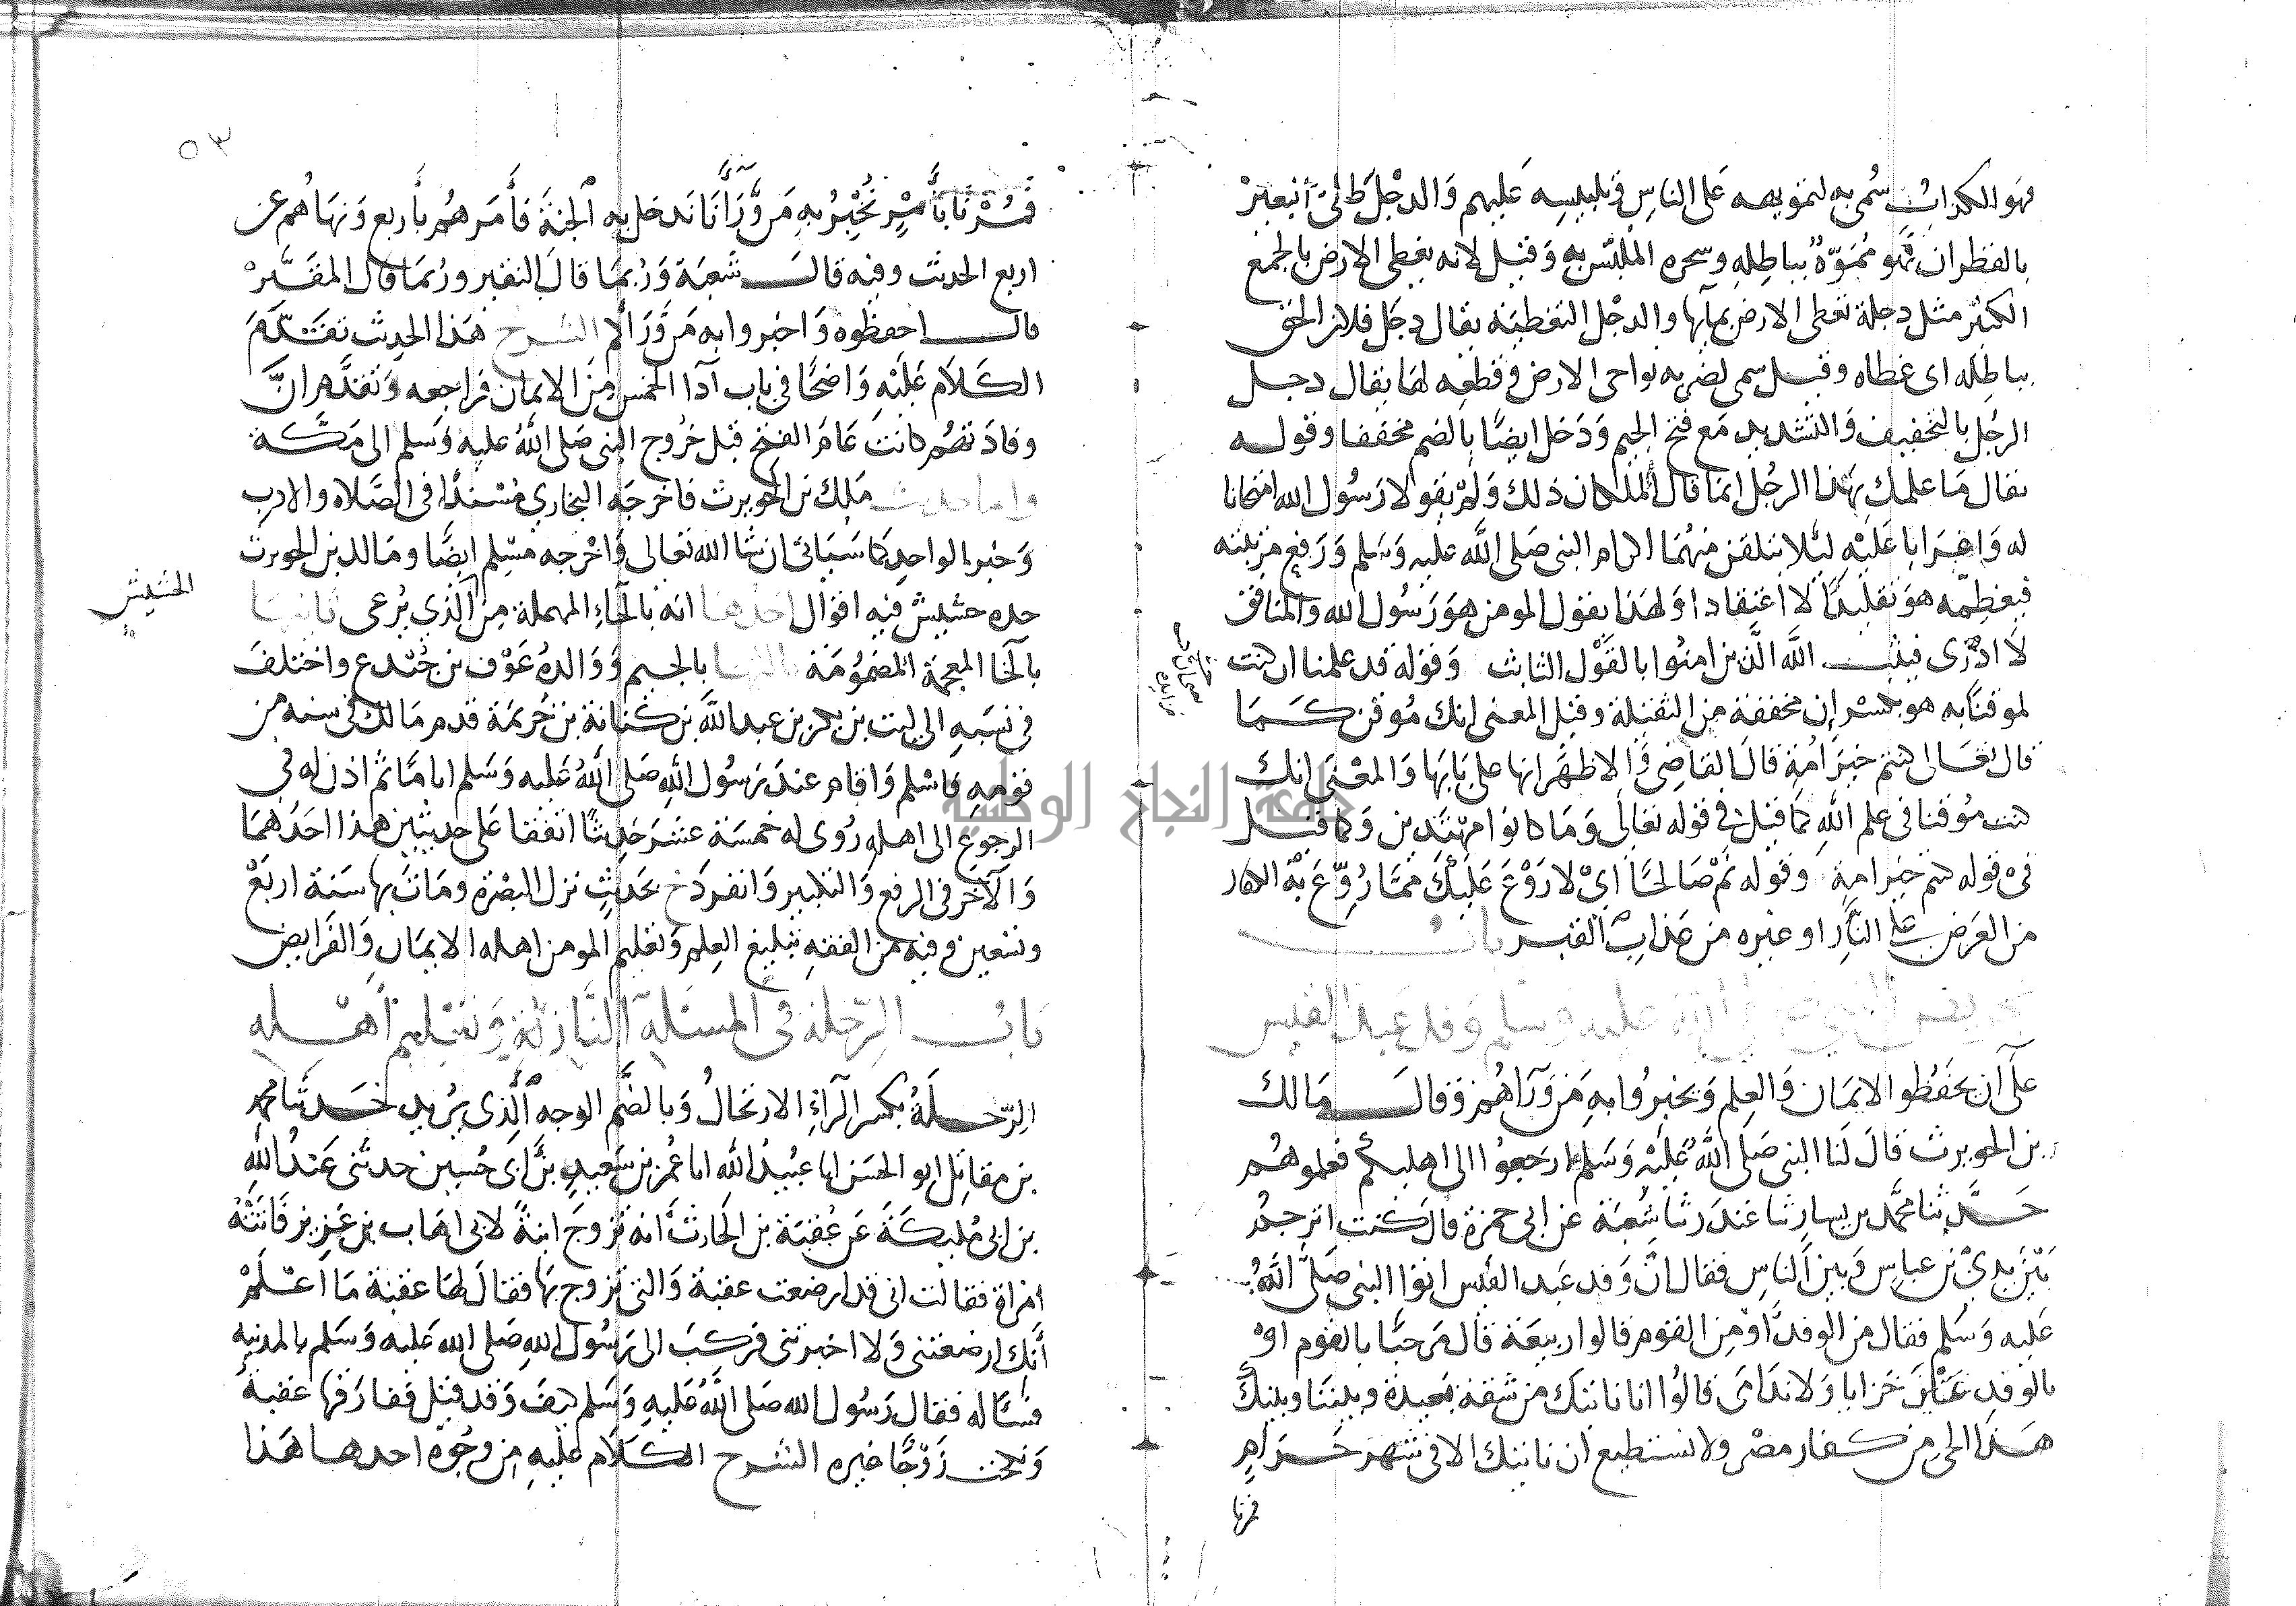 فهو الكذاب سُمي به لتمويهه على الناس وتلبيسه عليهم والدجل طلى البعير
بالقطران فهو مُمَوّهٌ بباطله وسحره الملبس به وقيل لانه يغطى الارض بالجمع
الكثير مثل دجلة تغطى الارض بمآيها والدجل التغطية يقال دجل فلان الحق
بباطله اى غطاه وقيل سمى لضربه نواحى الارض وقطعه لها يقال دجل
الرجُل بالتخفيف والتشديد مع فتح الجيم ودَجُل ايضًا بالضم مخففا وقوله
يقال مَا علمك بهَذا الرجُل انما قال الملكان ذلك ولم يقولا رَسُول الله امتحانا
له وَاغرابا عَلَيْه ليَلا يتلقن منهمَا اكرام النبى صَلى الله عليه وَسَلم وَرَفع مرتبته
فيعظمه هوَ تقليدًا لا اعتقادا وَلهَذا يقول المومن هوَ رَسُول الله والمنافق
لا ادْرى فيثبت الله الذين امنُوا بالقَوْل الثابت وَقوله قد علمنا ان كنت
لموقنًا به هو بكسر اِن مخففة من الثقيلة وقيل المعنى انك مُوقن كمَا
قال تعَالى كنتم خيرَ امةٍ قال القاضى وَالاظهَر انها على بَابهَا وَالمعْنَى انك
كنت مُوقنا فى علم الله كما قيل فى قوله تعَالى وَمَا كانوا مهتدين وَكما قيل
فى قوله كنتم خيرَ امةٍ وَقوله نَمْ صَالحًا اىْ لا رَوْعَ عَلَيْكَ ممَّا رُوِّعَ به الكفار
من العَرَض على النار او غيره من عَذاب القبر بابُ
تحريض النبي صلى الله عليه وسلم وفد عبد القيس
على ان يحفظوا الايمَان وَالعِلم وَيخبرُوا بهِ مَن وَرَآهُمْ وَقالَ مَالك
بن الحويرث قالَ لَنا النبى صَلى اللهُ عَليْهِ وَسَلم ارجعُوا الى اهليكم فعلموهُم
حَدَّثنا محمَّد بن بشار ثنا غندَر ثنا شُعبَة عن ابى جمرة قالَ كنت اترجمُ
بَيْنَ يدَىْ بن عباسٍ وَبين الناس فقال انَّ وَفد عَبد القيس اتوا النبى صَلى اللهُ
عَليه وَسَلم فقال من الوفد اوْ من القوم قالوا ربيعَة قال مَرحبًا بالقوم اوْ
بالوفد غيْرَ خزايا وَلا ندَامَى قالُوا انا ناتيك من شقةٍ بَعيدةٍ وبيننَا وبينكَ
هَذا الحى من كفار مضرَ ولا نستطيع ان ناتيك الا فى شهرٍ حَرَامٍ
فمرنا
٥٣
فَمُرْنَا بأَمْرٍ نُخْبِرُ به مَن وَّرَآنَا نَدخل به الجنة فَأمَرَهُم بأربع وَنهَاهُم عن
اربع الحديث وفيه قالَ شعبَة وَرُبمَا قالَ النقير ورُبمَا قال المقَيَّرْ
قال احفظوه وَاخبروا به مَن وَرَآكم الشرح هَذا الحديث تقَدَّمَ
الكَلام عَليْهِ وَاضحًا فى باب آدا الخمُس مِنَ الايمان فراجعه وَتقدَّم انَّ
وفادَتهُم كانت عَامَ الفتح قبْل خرُوج النبى صَلى اللهُ عليه وَسَلم الى مَكَّة
واما حديث مَلك بن الحويرث فاخرَجَه البخاري مُسْندًا فى الصَّلاه والادب
وَخبر الواحدِ كما سَيَاتى ان شَا الله تعَالى وَاخرجه مسْلم ايضًا ومَالك بن الحويرث
جده حشيش فيه اقوَال احدهَا انه بالحَاءِ المهملة مِنَ الذي يُرعى ثانيهَا
بالخا المعجمة المضمُومَة ثالثهَا بالجيم وَوَالدهُ عَوْف بن جُنْدع واختلفَ
فى نسَبهِ الى ليث بن بكر بن عبد الله بن كنانة بن خُزيمَة قدم مَالك فى ستة من
قومه فاسْلم وَاقام عندَ رَسُول الله صَلى اللهُ عَليه وَسَلم اياما ثم اذن له فى
الرجوع الى اهله رُوى له خمسَة عشرَ حَديثًا اتفقا عَلى حديثين هذا احَدُهُمَا
وَالآخر فى الرفع وَالتكبير وَانفردَ خ بحَديثٍ نزل البصْرَة ومَات بها سَنة اربَعْ
وتسعين وفيه من الفقه تبليغ العِلم وَتعليم المومن اهله الايمَان وَالفَرَايض
بَابُ الرِّحلة فى المسئلة النَّازلَة وَتعْليم اَهْله
الرّحلةُ بكسر الرآءِ الارتحالُ وَبالضَّم الوجه الّذى يُريد حَدثنا محمد
بن مقاتِل ابو الحسَن ابا عَبْدُ الله ابا عُمر بن سَعيد بن ابى حُسين حدثنى عَبْدُ الله
بن ابى مُليكَة عَن عُقبَة بن الحَارث انه تزوجَ ابنةً لابى اهَاب بن عَزيز فَاتتْهُ
امْرَاة فقالت انى قد ارضعت عقبة وَالتى تزوج بَها فقالَ لهَا عقبة مَا اَعْلَمْ
أنَّك ارضعتنى وَلا اخبرتنى فركبَ الى رَسُول الله صَلى الله عَليه وَسَلم بالمدينة
فسَاله فقال رَسُول الله صَلى اللهُ عَليهِ وَسَلم كيفَ وَقد قيل ففارَقها عقبةُ
وَنكحت زَوْجًا غيره الشرح الكَلَام عَليهِ مِن وجُوه احدهَا هَذا
الحشيش